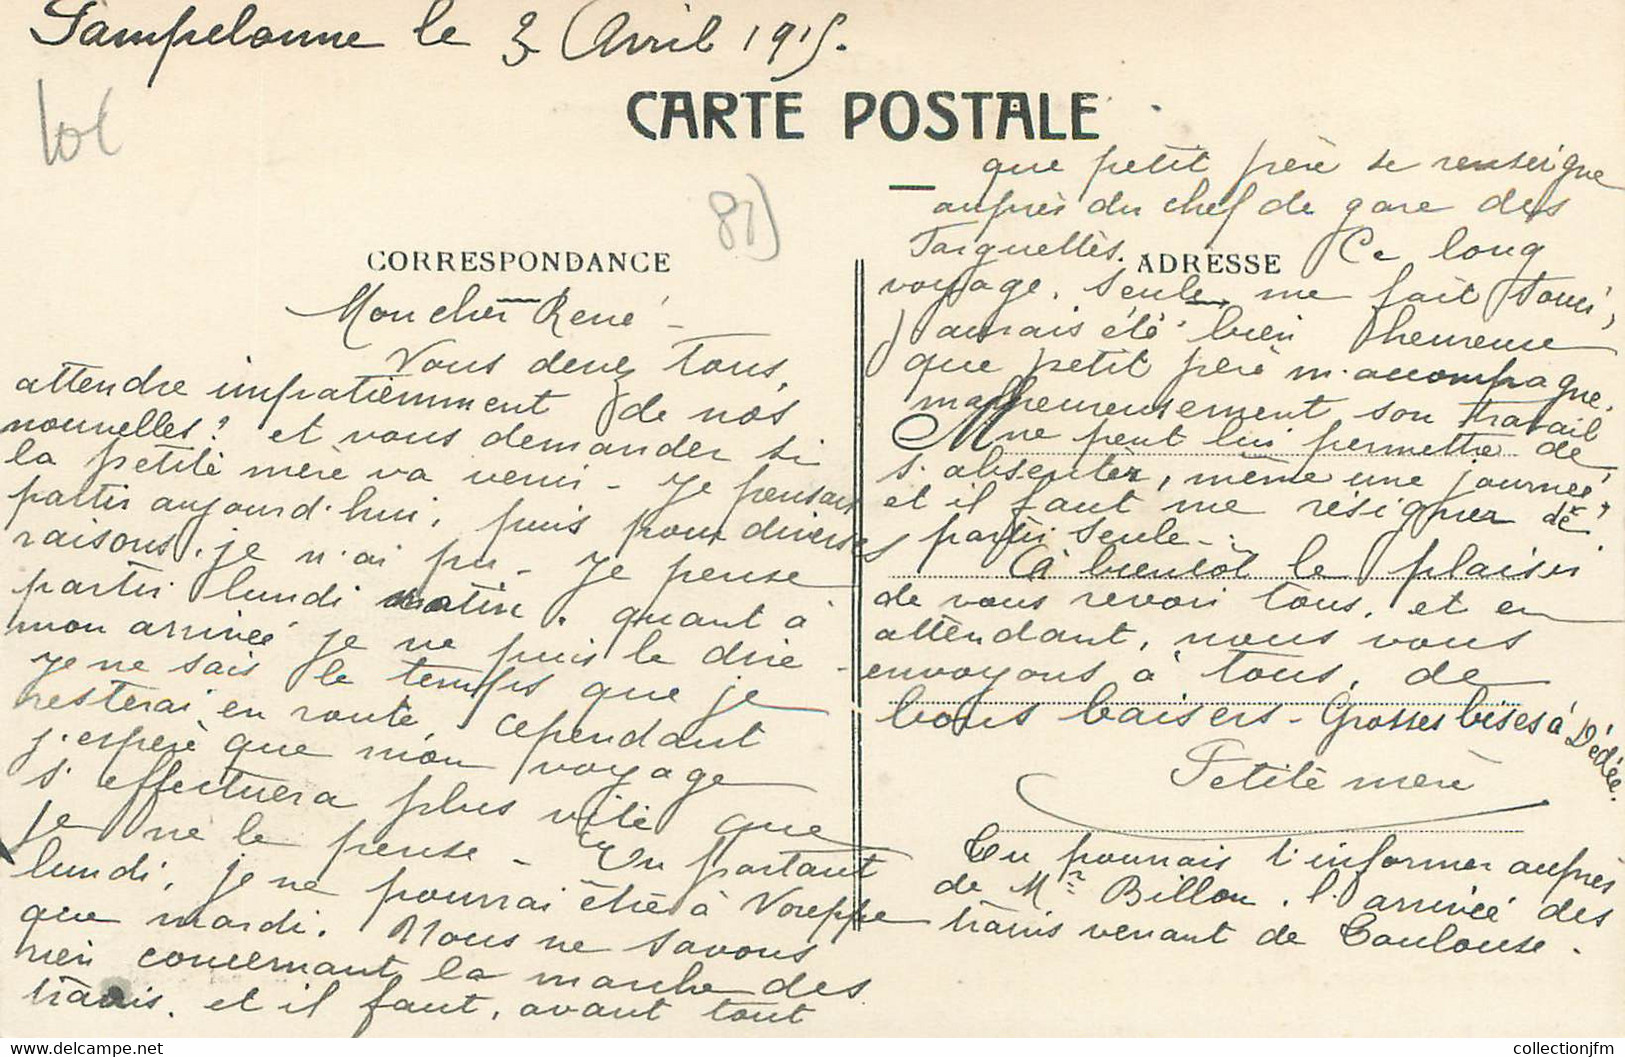 Pampelonne le 3 Avril 1915.
lot
CARTE POSTALE
81)
CORRESPONDANCE
Mon cher René -
Vous devez tous,
attendre impatiemment de nos
nouvelles? et vous demander si
la petite mère va venir - je pensais
partir aujourd'hui, puis pour diverses
raisons. je n'ai pu - Je pense
partir lundi matin. quant à
mon arrivée je ne puis le dire -
je ne sais le temps que je
resterai en route cependant
j'espère que mon voyage
s'effectuera plus vite que
je ne le pense - En partant
lundi, je ne pourrai être à Voreppe
que mardi. Nous ne savons
rien concernant la marche des
trains. et il faut, avant tout
ADRESSE
que petit père se renseigne
auprès du chef de gare des
Tarquettes. Ce long
voyage, seule, me fait souci,
j'aurais été bien heureuse
que petit père m'accompagne.
malheureusement son travail
ne peut lui permettre de
s'absenter, même une journée,
et il faut me résigner de
partir seule -
A bientôt le plaisir
de vous revoir tous, et en
attendant, nous vous
envoyons à tous, de
bons baisers - Grosses bises à Dédée.
Petite mère
Tu pourrais t'informer auprès
de Mr Billon. l'arrivée des
trains venant de Toulouse.
www.delcampe.net
collectionjfm